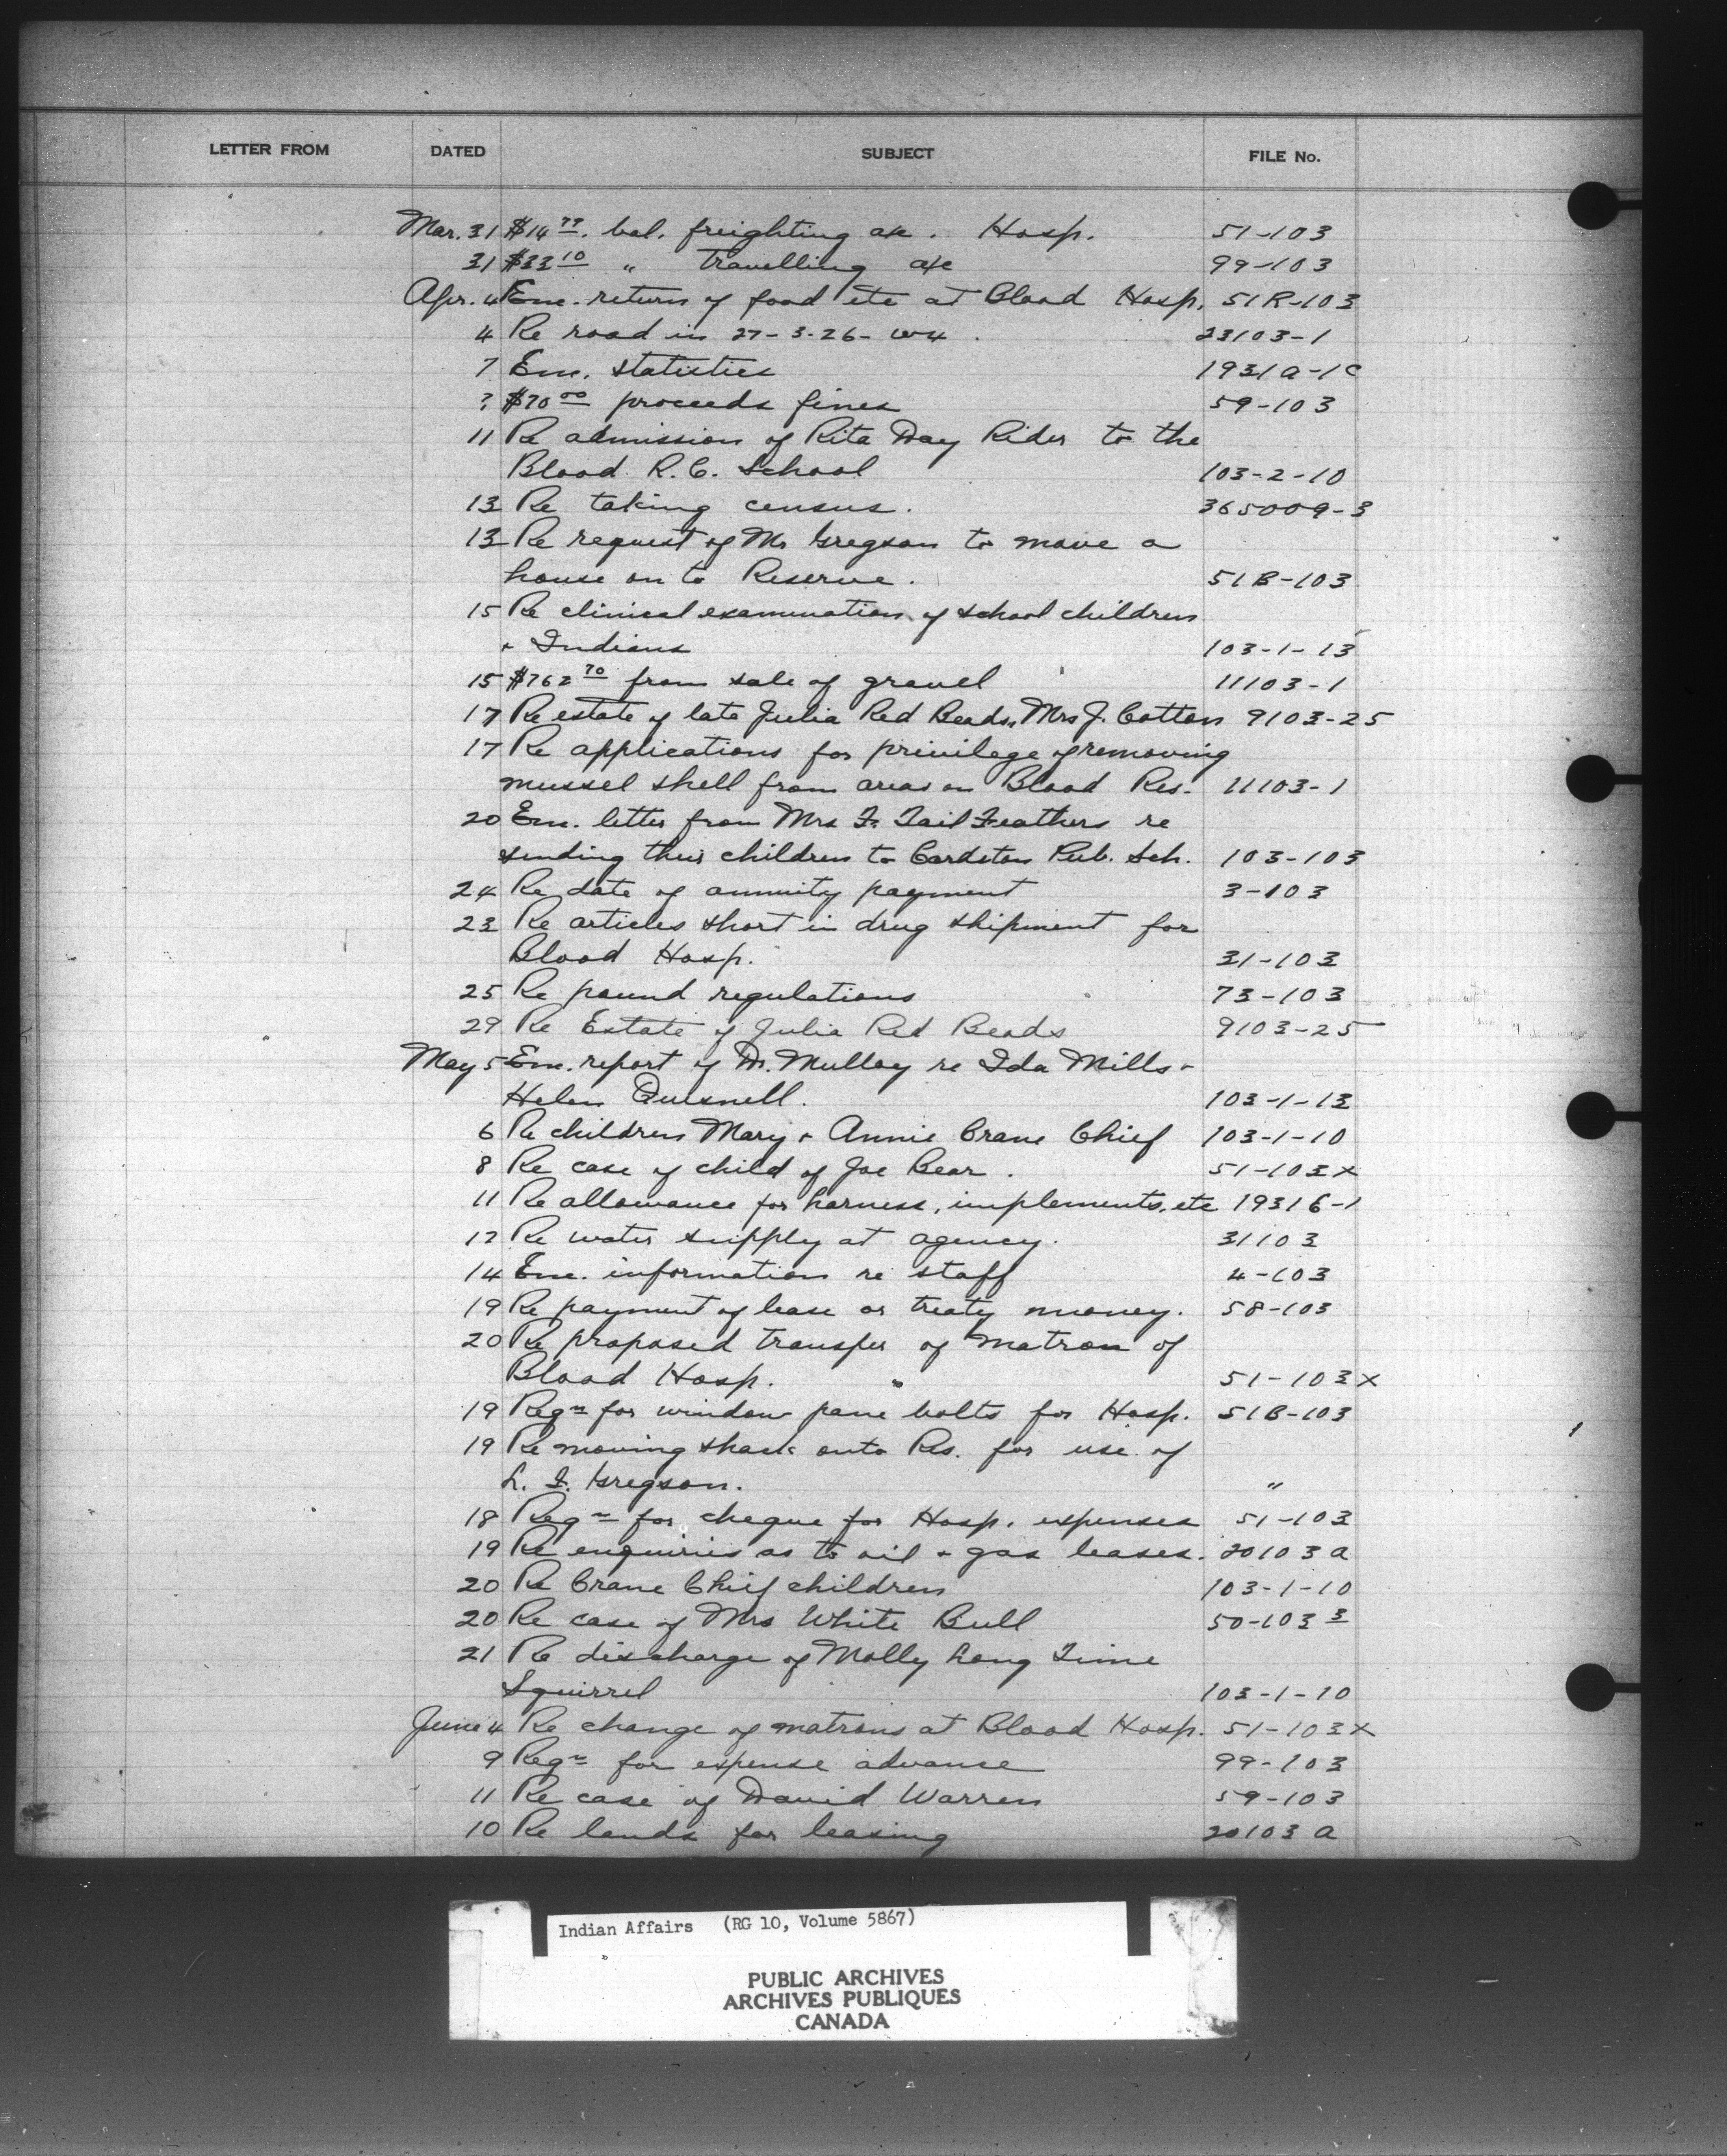 LETTER FROM DATED SUBJECT FILE No.
Mar. 31 $14 77. bal. freighting a/c. Hosp. 51-103
31 $33 10 " travelling a/c 99-103
Apr. 4 Enc. return of food etc at Blood Hosp. 51R-103
4 Re road in 27-3-26-W4. 23103-1
7 Enc. statistics 1931A-1C
? $70 00 proceeds fines 59-103
11 Re admission of Rita Day Rider to the
Blood R.C. School 103-2-10
13 Re taking census. 365009-3
13 Re request of Mr Gregson to move a
house on to Reserve. 51B-103
15 Re clinical examination of school children
+ Indians 103-1-13
15 $762 70 from sale of gravel 11103-1
17 Re estate of late Julia Red Beads, Mrs J. Cotton 9103-25
17 Re applications for privilege of removing
mussel shell from areas on Blood Res. 11103-1
20 Enc. letter from Mrs F. Tail Feathers re
sending their children to Cardston Pub. Sch. 103-103
24 Re date of annuity payment 3-103
23 Re articles short in drug shipment for
Blood Hosp. 31-103
25 Re pound regulations 73-103
29 Re Estate of Julia Red Beads 9103-25
May 5 Enc. report of Dr. Mulloy re Ida Mills +
Helen Quesnell. 103-1-13
6 Re children Mary + Annie Crane Chief 103-1-10
8 Re case of child of Joe Bear. 51-103X
11 Re allowance for harness, implements, etc 19316-1
12 Re water supply at agency. 31103
14 Enc. information re staff 4-103
19 Re payment of lease or treaty money. 58-103
20 Re proposed transfer of Matron of
Blood Hosp. 51-103X
19 Reqn for window pane bolts for Hosp. 51B-103
19 Re moving shack onto Res. for use of
L. F. Gregson. "
18 Reqn for cheque for Hosp. expenses 51-103
19 Re enquiries as to oil + gas leases. 20103A
20 Re Crane Chief children 103-1-10
20 Re case of Mrs White Bull 50-103 3
21 Re discharge of Molly Long Time
Squirrel 103-1-10
June 4 Re change of matrons at Blood Hosp. 51-103X
9 Reqn for expense advance 99-103
11 Re case of David Warren 59-103
10 Re lands for leasing 20103A
Indian Affairs (RG 10, Volume 5867)
PUBLIC ARCHIVES
ARCHIVES PUBLIQUES
CANADA